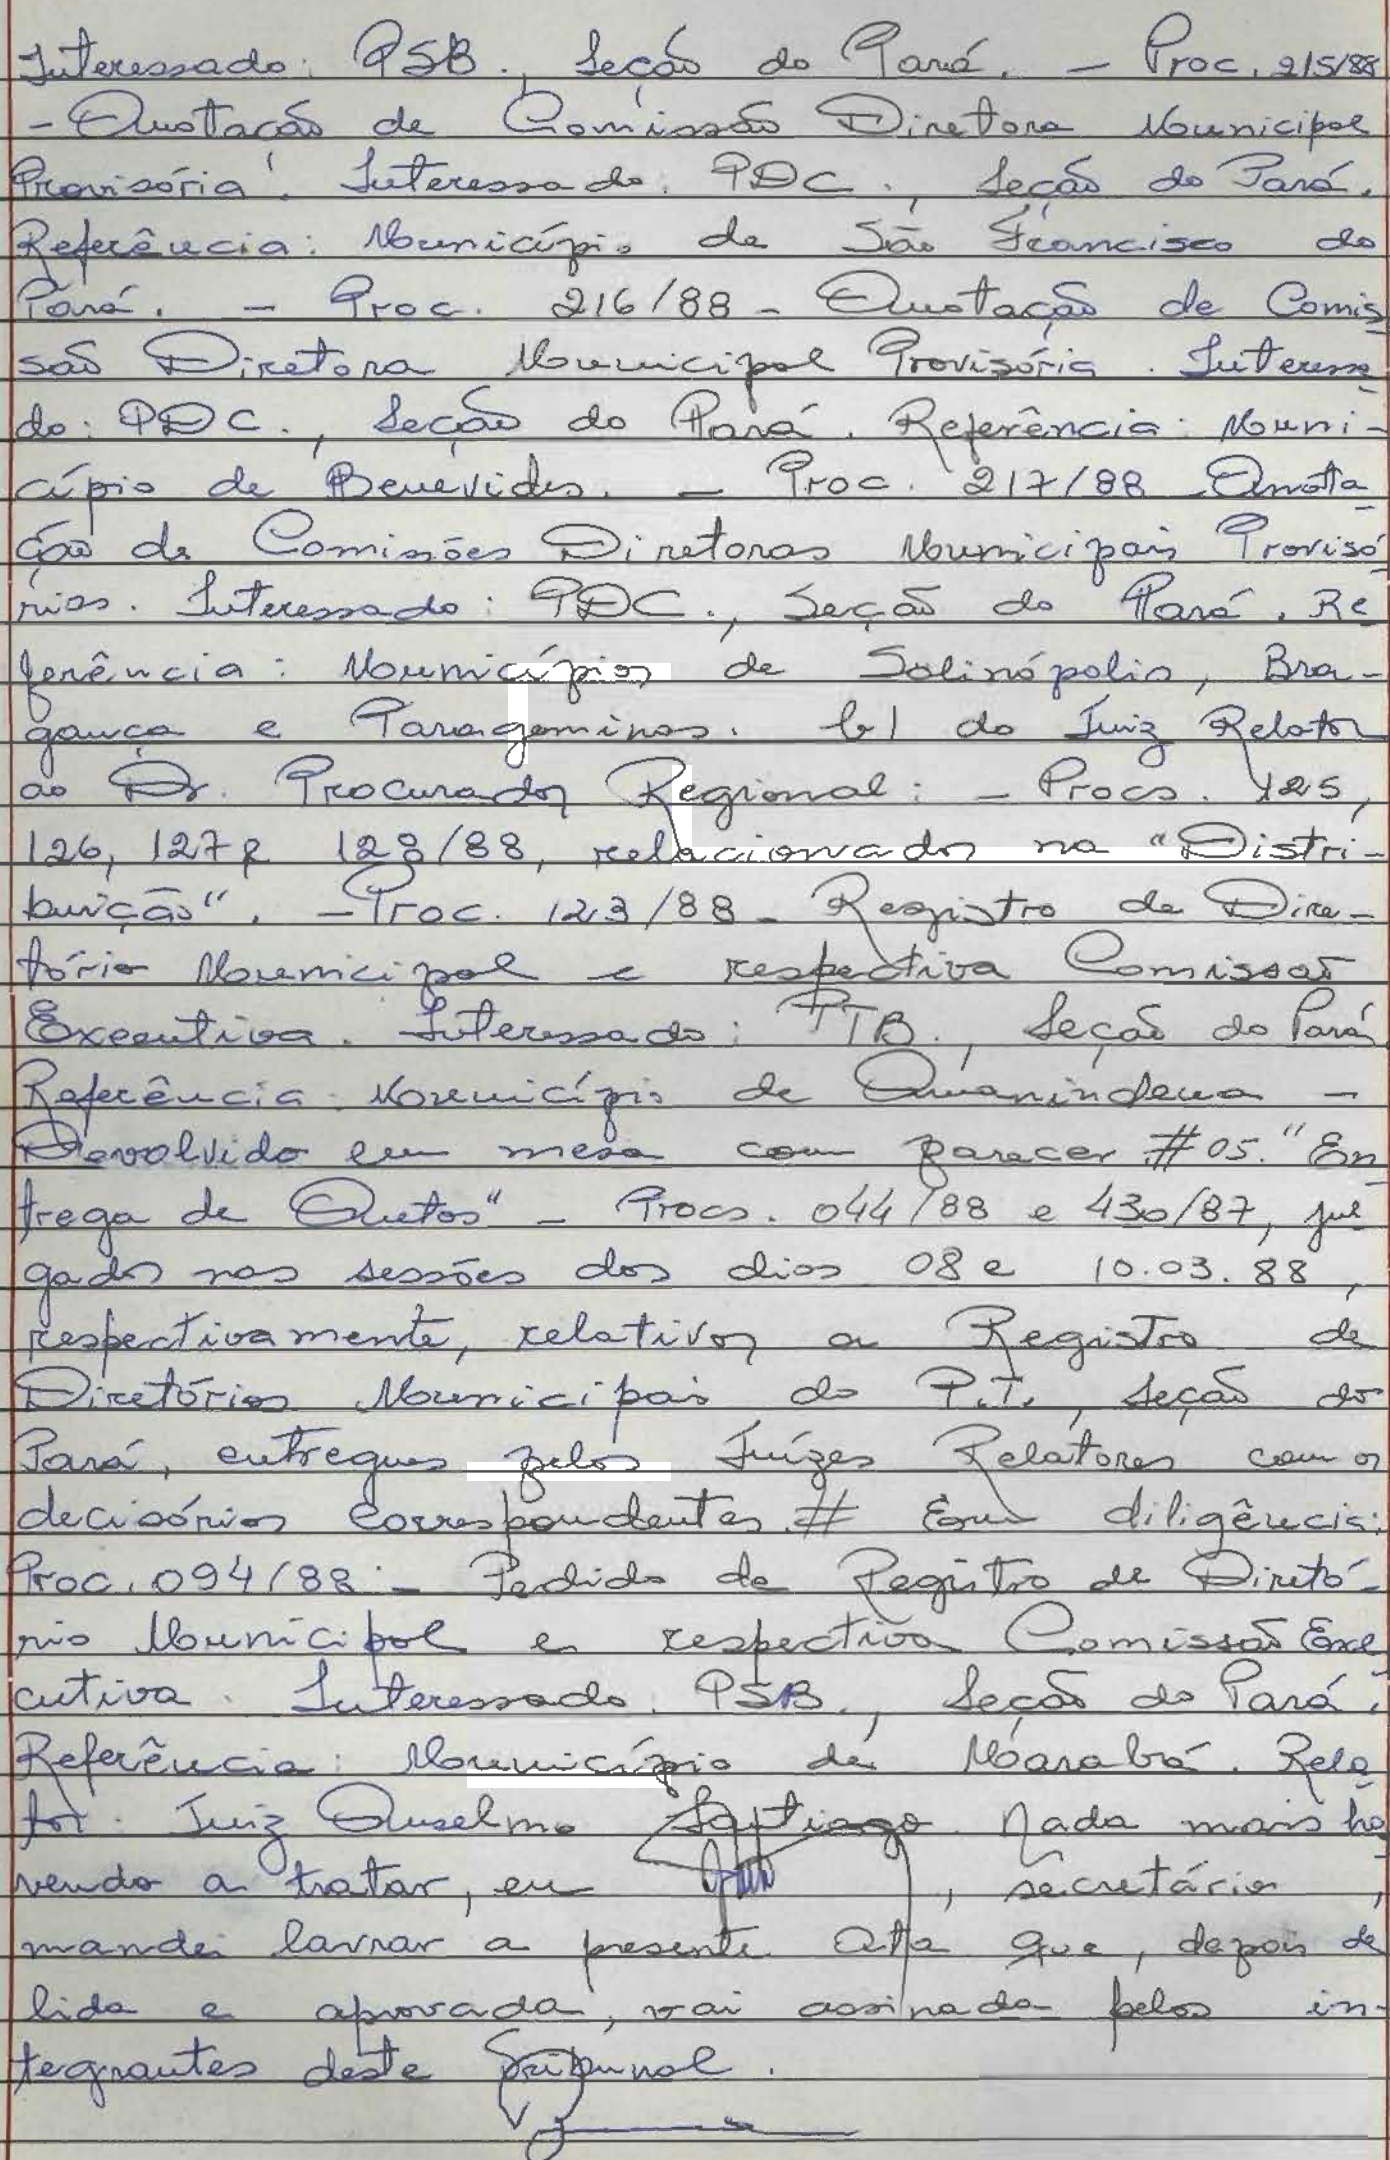 Interessado: PSB., Seção do Pará. — Proc. 215/88
- Anotação de Comissão Diretora Municipal
Provisória. Interessado: PDC., Seção do Pará.
Referência: Município de São Francisco do
Pará. — Proc. 216/88 - Anotação de Comis
são Diretora Municipal Provisória. Interessa
do: PDC., Seção do Pará. Referência: Muni-
cípio de Benevides. — Proc. 217/88 - Anota
ção de Comissões Diretoras Municipais Provisó
rias. Interessado: PDC., Seção do Pará. Re
ferência: Municípios de Salinópolis, Bra-
gança e Paragominas. b) do Juiz Relator
ao Dr. Procurador Regional: - Procs. 125,
126, 127 e 128/88, relacionados na "Distri-
buição". - Proc. 123/88 - Registro de Dire-
tório Municipal e respectiva Comissão
Executiva. Interessado: PTB., Seção do Pará
Referência: Município de Ananindeua -
Devolvido em mesa com parecer # 05. "En
trega de Autos" - Procs. 044/88 e 430/87, jul
gados nas sessões dos dias 08 e 10.03.88,
respectivamente, relativos a Registro de
Diretórios Municipais do P.T., Seção do
Pará, entregues pelos Juízes Relatores com os
decisórios correspondentes. # Em diligência:
Proc. 094/88 - Pedido de Registro de Diretó-
rio Municipal e respectiva Comissão Exe
cutiva. Interessado: PSB., Seção do Pará.
Referência: Município de Marabá. Rela
tor: Juiz Anselmo Santiago. Nada mais ha
vendo a tratar, eu , secretário,
mandei lavrar a presente Ata que, depois de
lida e aprovada, vai assinada pelos in-
tegrantes deste Tribunal.